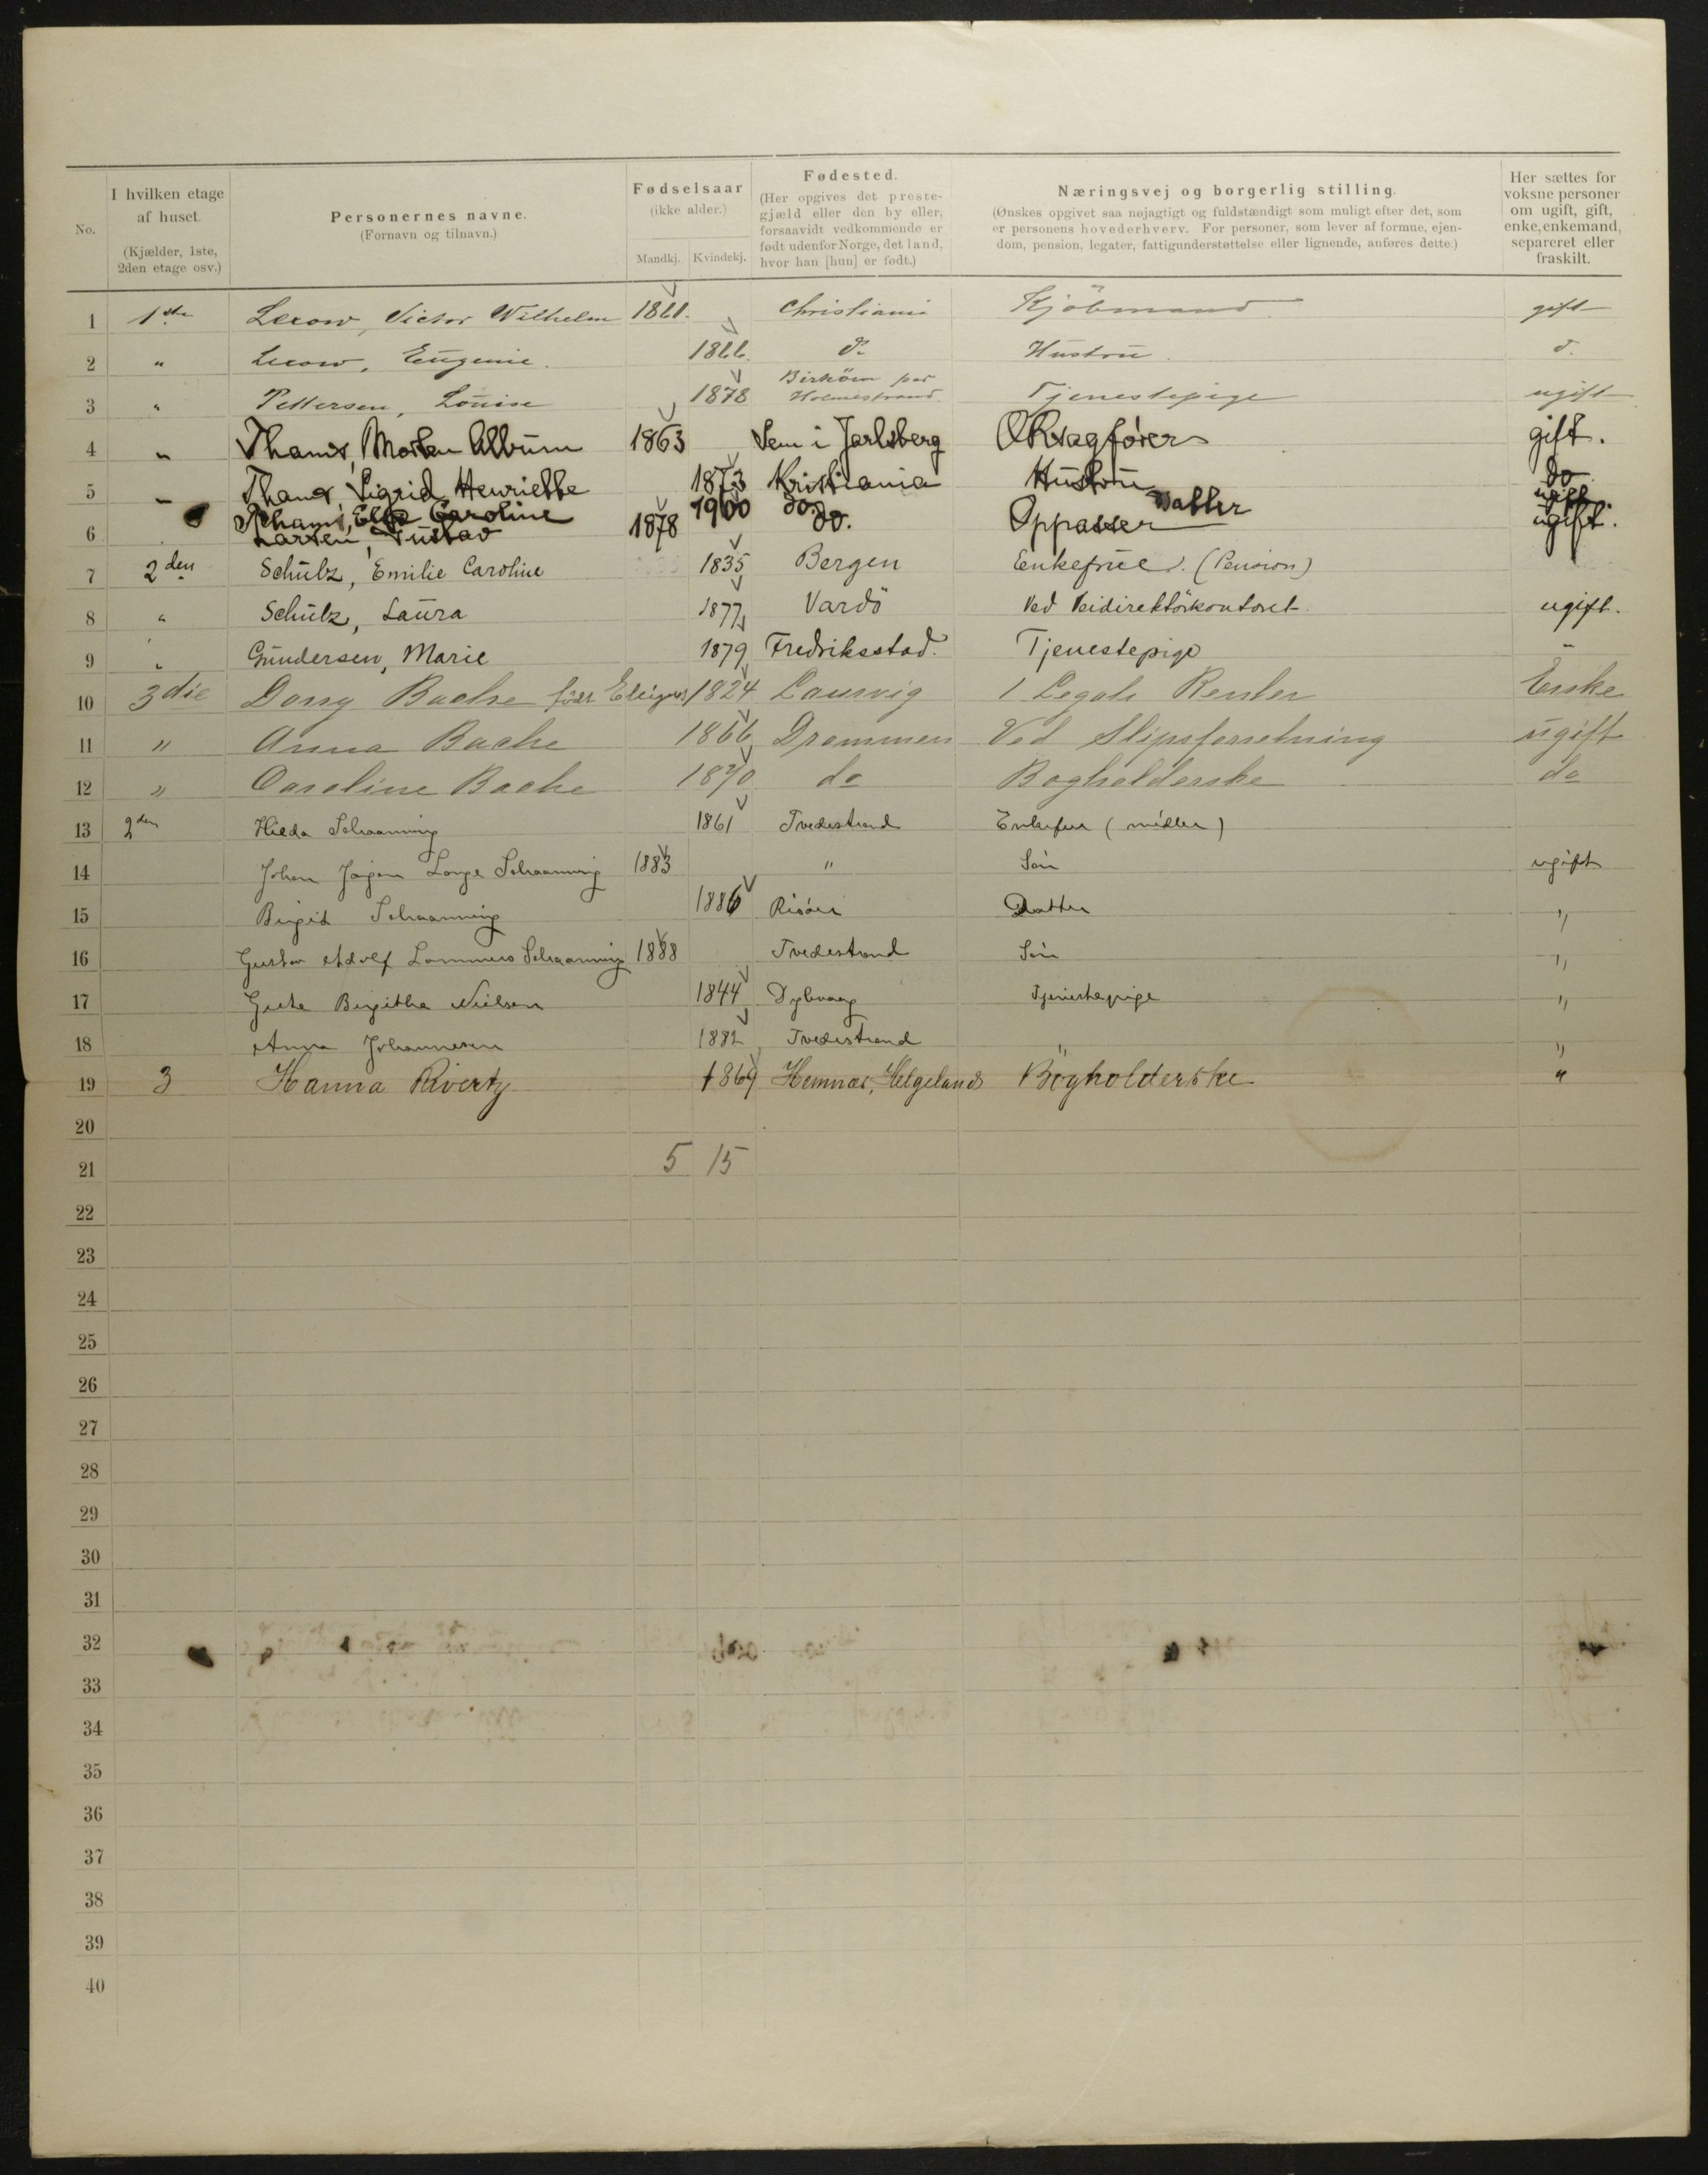 No.
I hvilken etage af huset. (Kjælder, 1ste, 2den etage osv.)
Personernes navne. (Fornavn og tilnavn.)
Fødselsaar (ikke alder.) Mandkj. Kvindekj.
Fødested. (Her opgives det prestegjæld eller den by eller, forsaavidt vedkommende er født udenfor Norge, det land, hvor han [hun] er født.)
Næringsvej og borgerlig stilling. (Ønskes opgivet saa nøjagtigt og fuldstændigt som muligt efter det, som er personens hovederhverv. For personer, som lever af formue, ejendom, pension, legater, fattigunderstøttelse eller lignende, anføres dette.)
Her sættes for voksne personer om ugift, gift, enke, enkemand, separeret eller fraskilt.
1 1ste Lexow, Victor Wilhelm Christiania Kjöbmand gift
2 " Lexow, Eugenie. 1866 do Hustru d.
3 " Pettersen, Louise 1878 Holmestrand. Tjenestepige ugift
4 " Thams, Morten Album 1863 Sem i Jarlsberg ORsagfører gift.
5 " Thams, Sigrid Henriette 1873 Kristiania Hustru do
Thams, Else Caroline 1900 do. Datter ugift
6 Larsen, Gustav 1878 do. Oppasser ugift.
7 2den Schulz, Emilie Caroline 1835 Bergen Enkefrue. (Pension)
8 " Schulz, Laura 1877 Vardö Ved Veidirektörkontoret ugift.
9 " Gundersen, Marie 1879 Fredriksstad. Tjenestepige "
10 3die Bache född 1824 Laurvig Renter Enke
11 " Anna Bache 1866 Drammen Ved Slipsforretning ugift
12 " Caroline Bache 1870 do Bogholderske do
13 2den Hilda Schaanning 1861 Tvedestrand Enkefru (midler)
14 Johan Jørgen Lange Schaanning 1883 " Søn ugift
15 Birgit Schaanning 1886 Risöer Datter "
16 Gustav Adolf Lammers Schaanning 1888 Tvedestrand Søn "
17 Birgitha Nielsen 1844 Dybvaag Tjenestepige "
18 Anna Johannesen 1882 Tvedestrand " "
19 3 Hanna Rivertz 1869 Hemnæs, Helgeland Bogholderske "
20
21 5 15
22
23
24
25
26
27
28
29
30
31
32
33
34
35
36
37
38
39
40